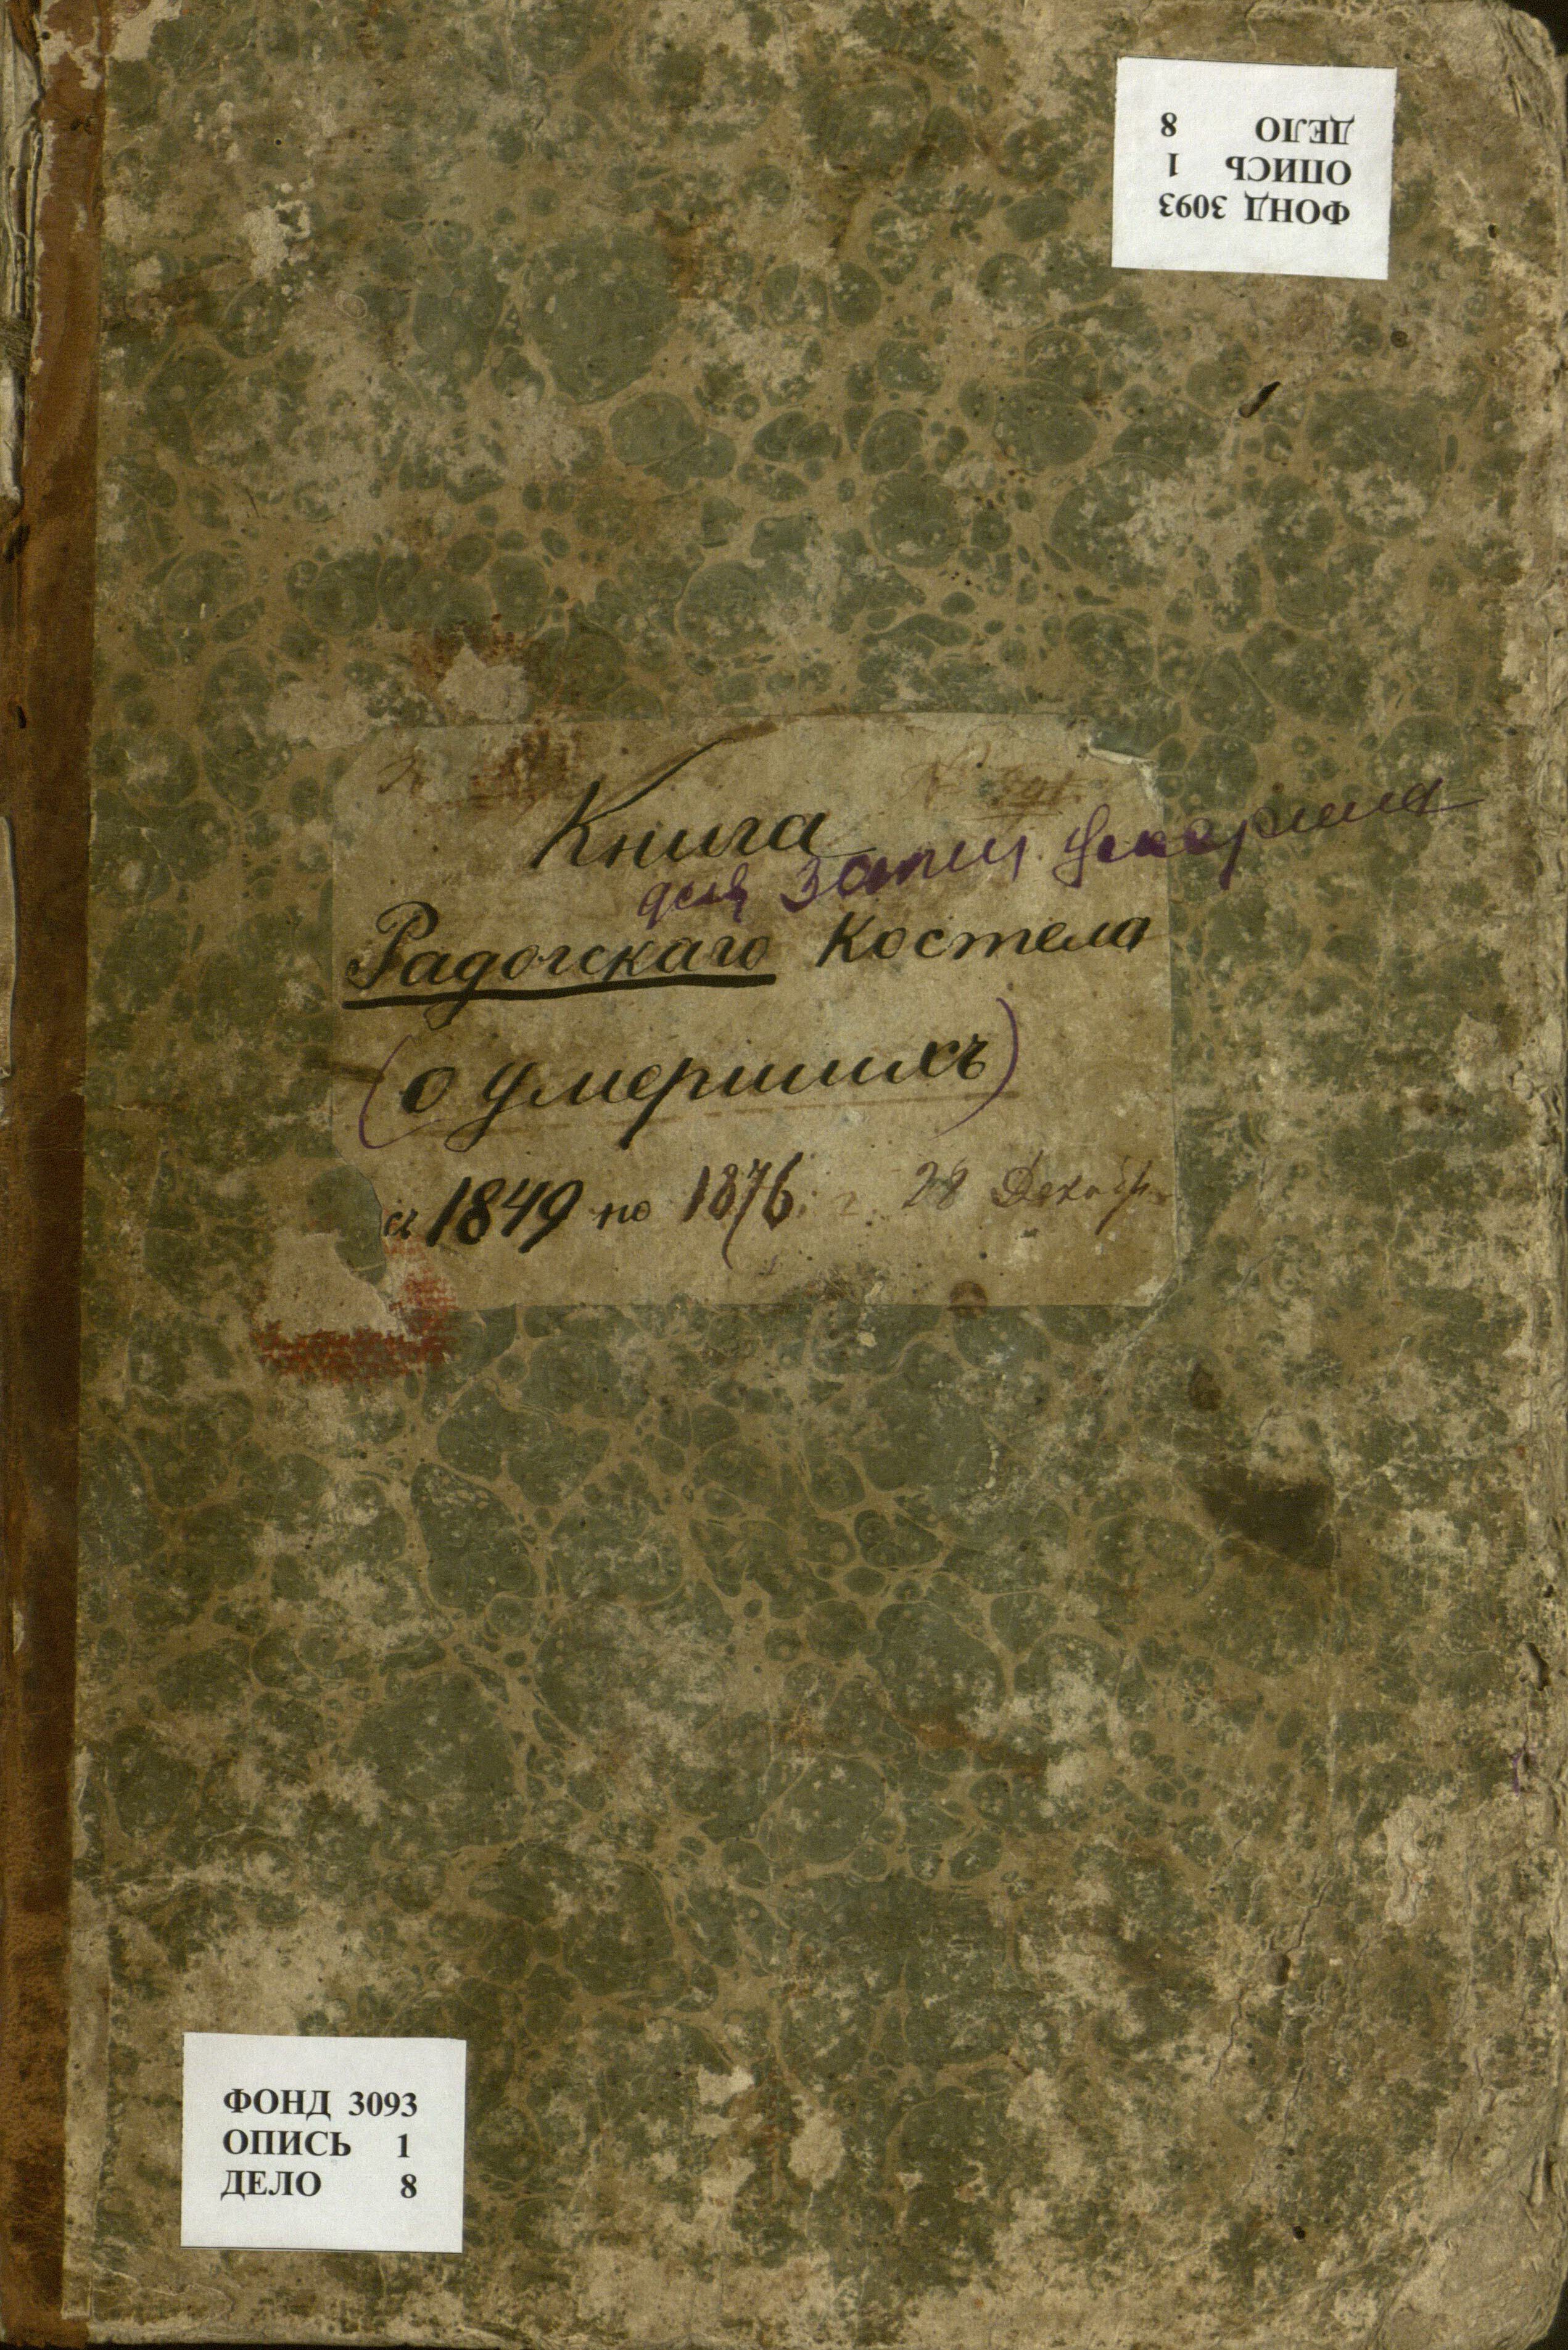 ДЕЛО 8
ОПИСЬ 1
ФОНД 3093
Книга
для записи
Радогскаго Костела
(о умершихъ)
съ 1849 по 1876 г. 28 Декабр.
ФОНД 3093
ОПИСЬ 1
ДЕЛО 8